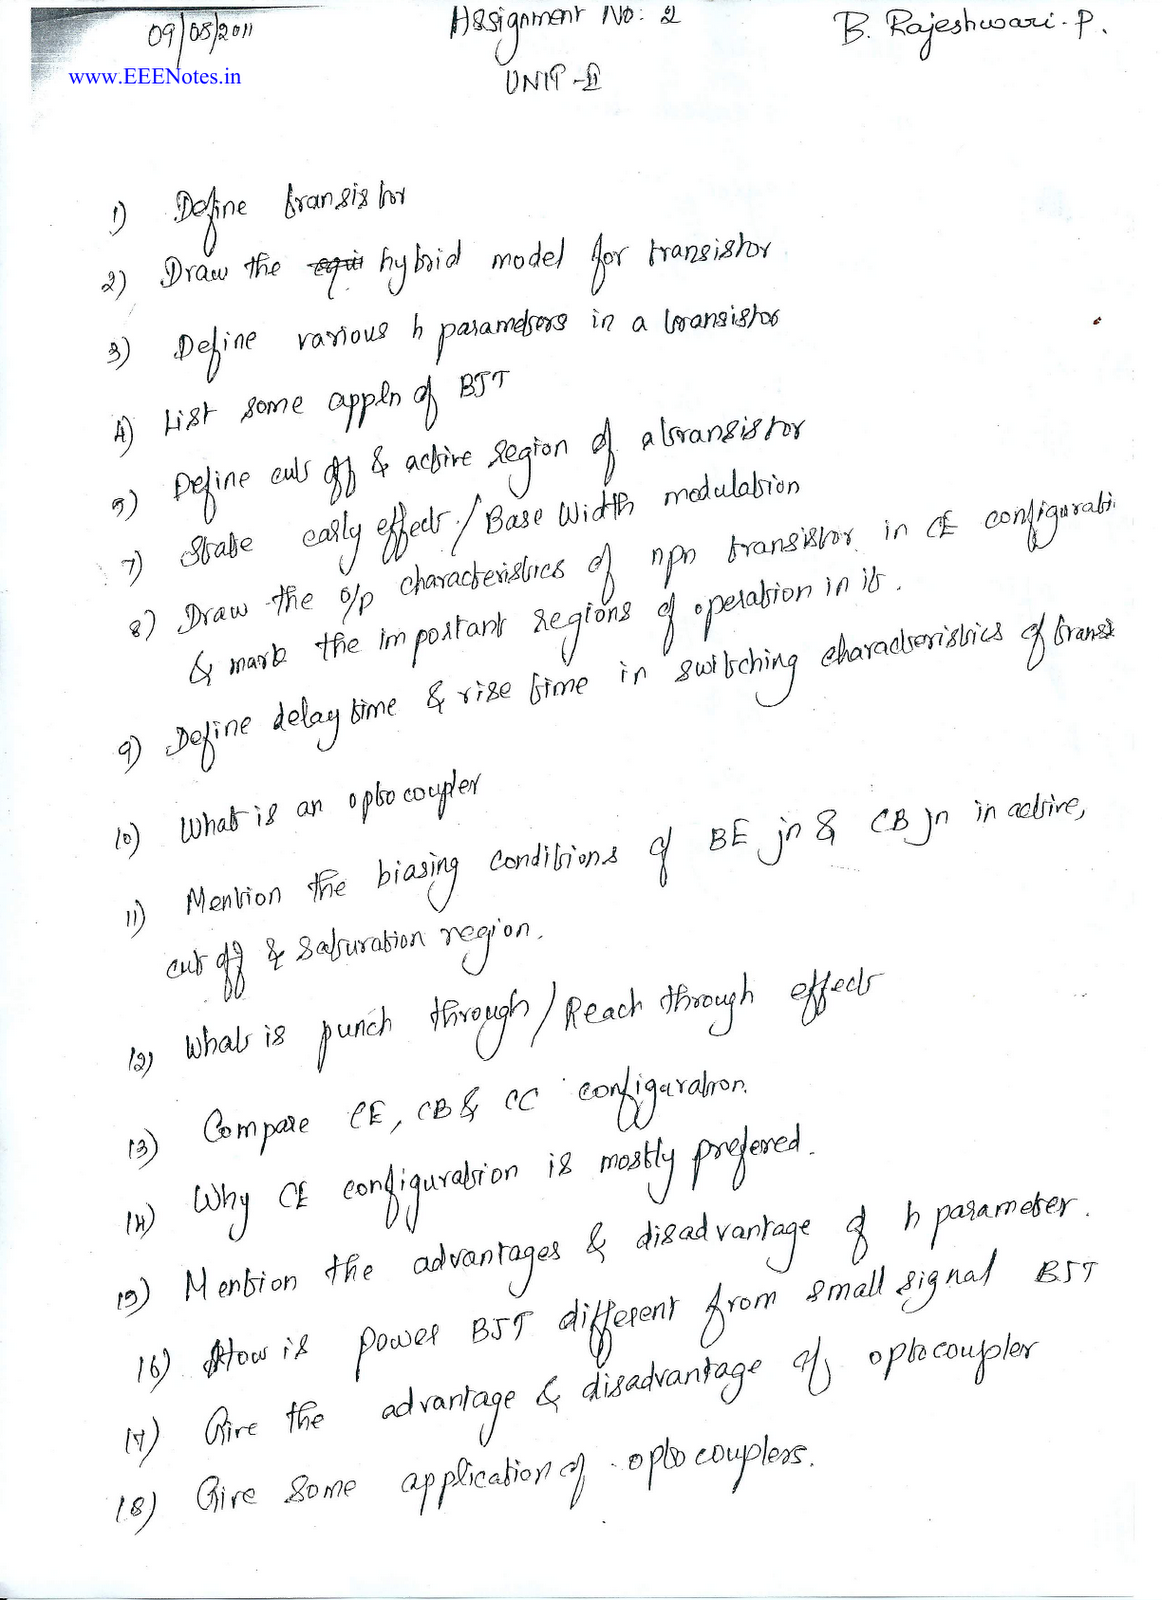 09/08/2011
Assignment No: 2
B. Rajeshwari. P.
www.EEENotes.in
UNIT - II
1) Define transistor
2) Draw the equi hybrid model for transistor
3) Define various h parameters in a transistor
4) List some appln of BJT
5) Define cut off & active region of a transistor
7) State early effect / Base Width modulation
8) Draw the o/p characteristics of npn transistor in CE configurati
& mark the important regions of operation in it.
9) Define delay time & rise time in switching characteristics of transi
10) What is an opto coupler
11) Mention the biasing conditions of BE jn & CB jn in active,
cut off & saturation region.
12) What is punch through / Reach through effect
13) Compare CE, CB & CC configuration.
14) Why CE configuration is mostly prefered.
15) Mention the advantages & disadvantage of h parameter.
16) How is power BJT different from small signal BJT
17) Give the advantage & disadvantage of optocoupler
18) Give some application of opto couplers.